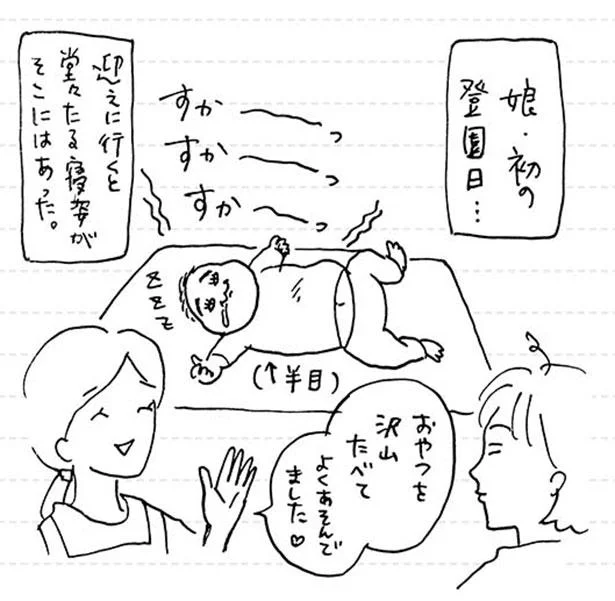 娘・初の
登園日…
迎えに行くと
堂々たる寝姿が
そこにはあった。
すか〜〜っ
すか〜〜っ
すか〜〜っ
zzz
(↑半目)
おやつを
沢山
たべて
よくあそんで
ました♡